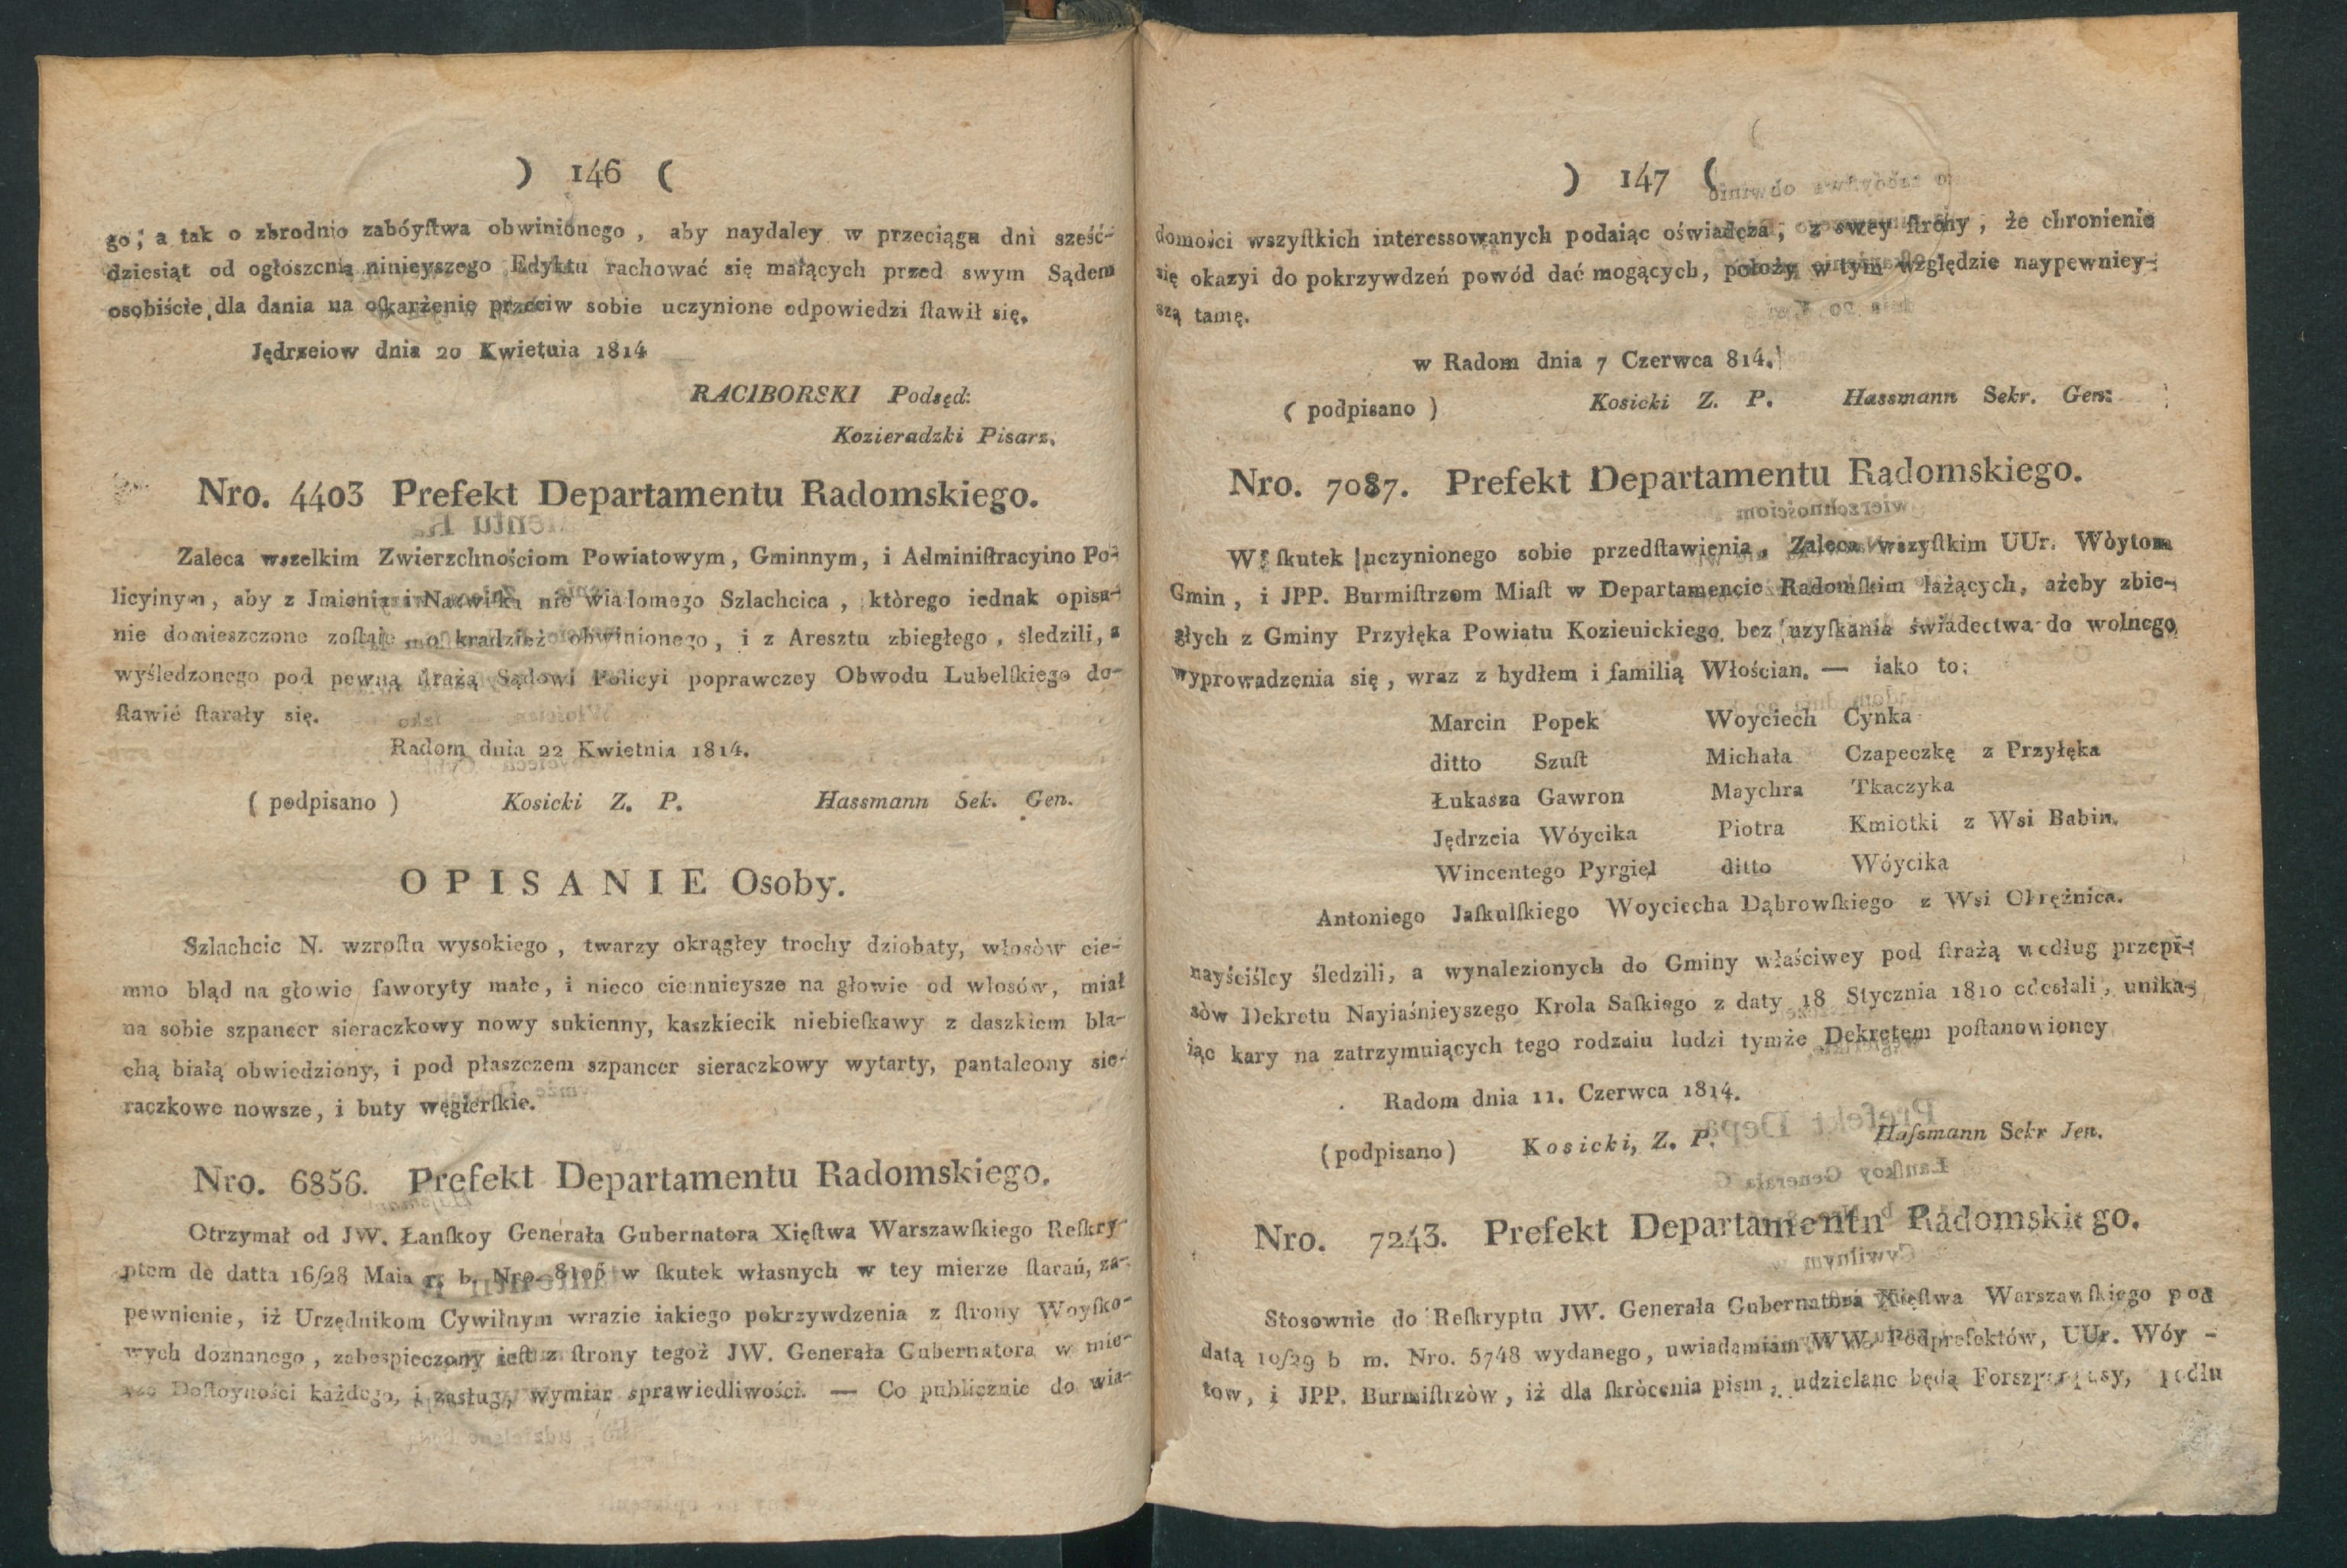 ) 146 (
go; a tak o zbrodnio zabóyſtwa obwiniónego, aby naydaley w przeciągu dni sześć-
dziesiąt od ogłoszenią ninieyszego Edyktu rachować się maiących przed swym Sądem
osobiście, dla dania na oſkarżenię przeciw sobie uczynione odpowiedzi ſtawił się.
Jędrzeiow dnia 20 Kwietuia 1814
RACIBORSKI Podsęd:
Kozieradzki Pisarz.
Nro. 4403 Prefekt Departamentu Radomskiego.
Zaleca wszelkim Zwierzchnościom Powiatowym, Gminnym, i Adminiſtracyino Po-
licyinym, aby z Jmienia i Nazwiſka nie wiadomego Szlachcica, którego iednak opisa-
nie domieszczone zoſtaie, o kradzież obwinionego, i z Aresztu zbiegłego, śledzili, a
wyśledzonego pod pewną ſtrażą Sądowi Policyi poprawczey Obwodu Lubelſkiego do-
ſtawić ſtarały się.
Radom dnia 22 Kwietnia 1814.
( podpisano ) Kosicki Z. P. Hassmann Sek. Gen.
OPISANIE Osoby.
Szlachcic N. wzroſtu wysokiego, twarzy okrągłey trochy dziobaty, włosòw cie-
mno bląd na głowie faworyty małe, i nieco ciemnieysze na głowie od włosów, miał
na sobie szpancer sieraczkowy nowy sukienny, kaszkiecik niebieſkawy z daszkiem bla-
chą białą obwiedziony, i pod płaszczem szpancer sieraczkowy wytarty, pantaleony sie-
raczkowe nowsze, i buty węgierſkie.
Nro. 6856. Prefekt Departamentu Radomskiego.
Otrzymał od JW. Łanſkoy Generała Gubernatora Xięſtwa Warszawſkiego Reſkry-
ptem de datta 16/28 Maia r. b. Nro. 8105 w ſkutek własnych w tey mierze ſtarań, za-
pewnienie, iż Urzędnikom Cywilnym wrazie iakiego pokrzywdzenia z ſtrony Woyſko-
wych doznanego, zabespieczony ieſt z ſtrony tegoż JW. Generała Gubernatora w mie-
Doſtoyności każdego, i zasług, wymiar sprawiedliwości. — Co publicznie do wia-
) 147 (
domości wszyſtkich interessowanych podaiąc oświadcza, z swey ſtrony, że chronienie
się okazyi do pokrzywdzeń powód dać mogących, położy w tym względzie naypewniey-
szą tamę.
w Radom dnia 7 Czerwca 814.
( podpisano ) Kosicki Z. P. Hassmann Sekr. Gen:
Nro. 7087. Prefekt Departamentu Radomskiego.
W ſkutek uczynionego sobie przedſtawienia, Zaleca wszyſtkim UUr. Wòytom
Gmin, i JPP. Burmiſtrzom Miaſt w Departamencie Radomſkim łażących, ażeby zbie-
głych z Gminy Przyłęka Powiatu Kozienickiego bez uzyſkania świadectwa do wolnego
wyprowadzenia się, wraz z bydłem i familią Włościan. — iako to:
Marcin Popek Woyciech Cynka
ditto Szuſt Michała Czapeczkę z Przyłęka
Łukasza Gawron Maychra Tkaczyka
Jędrzeia Wóycika Piotra Kmiotki z Wsi Babin.
Wincentego Pyrgiel ditto Wóycika
Antoniego Jaſkulſkiego Woyciecha Dąbrowſkiego z Wsi Okrężnica.
nayściśley śledzili, a wynalezionych do Gminy właściwey pod ſtrażą według przepi-
sòw Dekretu Nayiaśnieyszego Krola Saſkiego z daty 18 Stycznia 1810 odesłali, unika-
iąc kary na zatrzymuiących tego rodzaiu ludzi tymże Dekretem poſtanowioney
Radom dnia 11. Czerwca 1814.
(podpisano) Kosicki, Z. P. Haſsmann Sekr Jen.
Nro. 7243. Prefekt Departamentn Radomskiego.
Stosownie do Reſkryptu JW. Generała Gubernatora Xięſtwa Warszawſkiego pod
datą 10/29 b m. Nro. 5748 wydanego, uwiadamiam WW. Podprefektów, UUr. Wóy -
tow, i JPP. Burmiſtrzòw, iż dla ſkròcenia pism, udzielane będą podłu